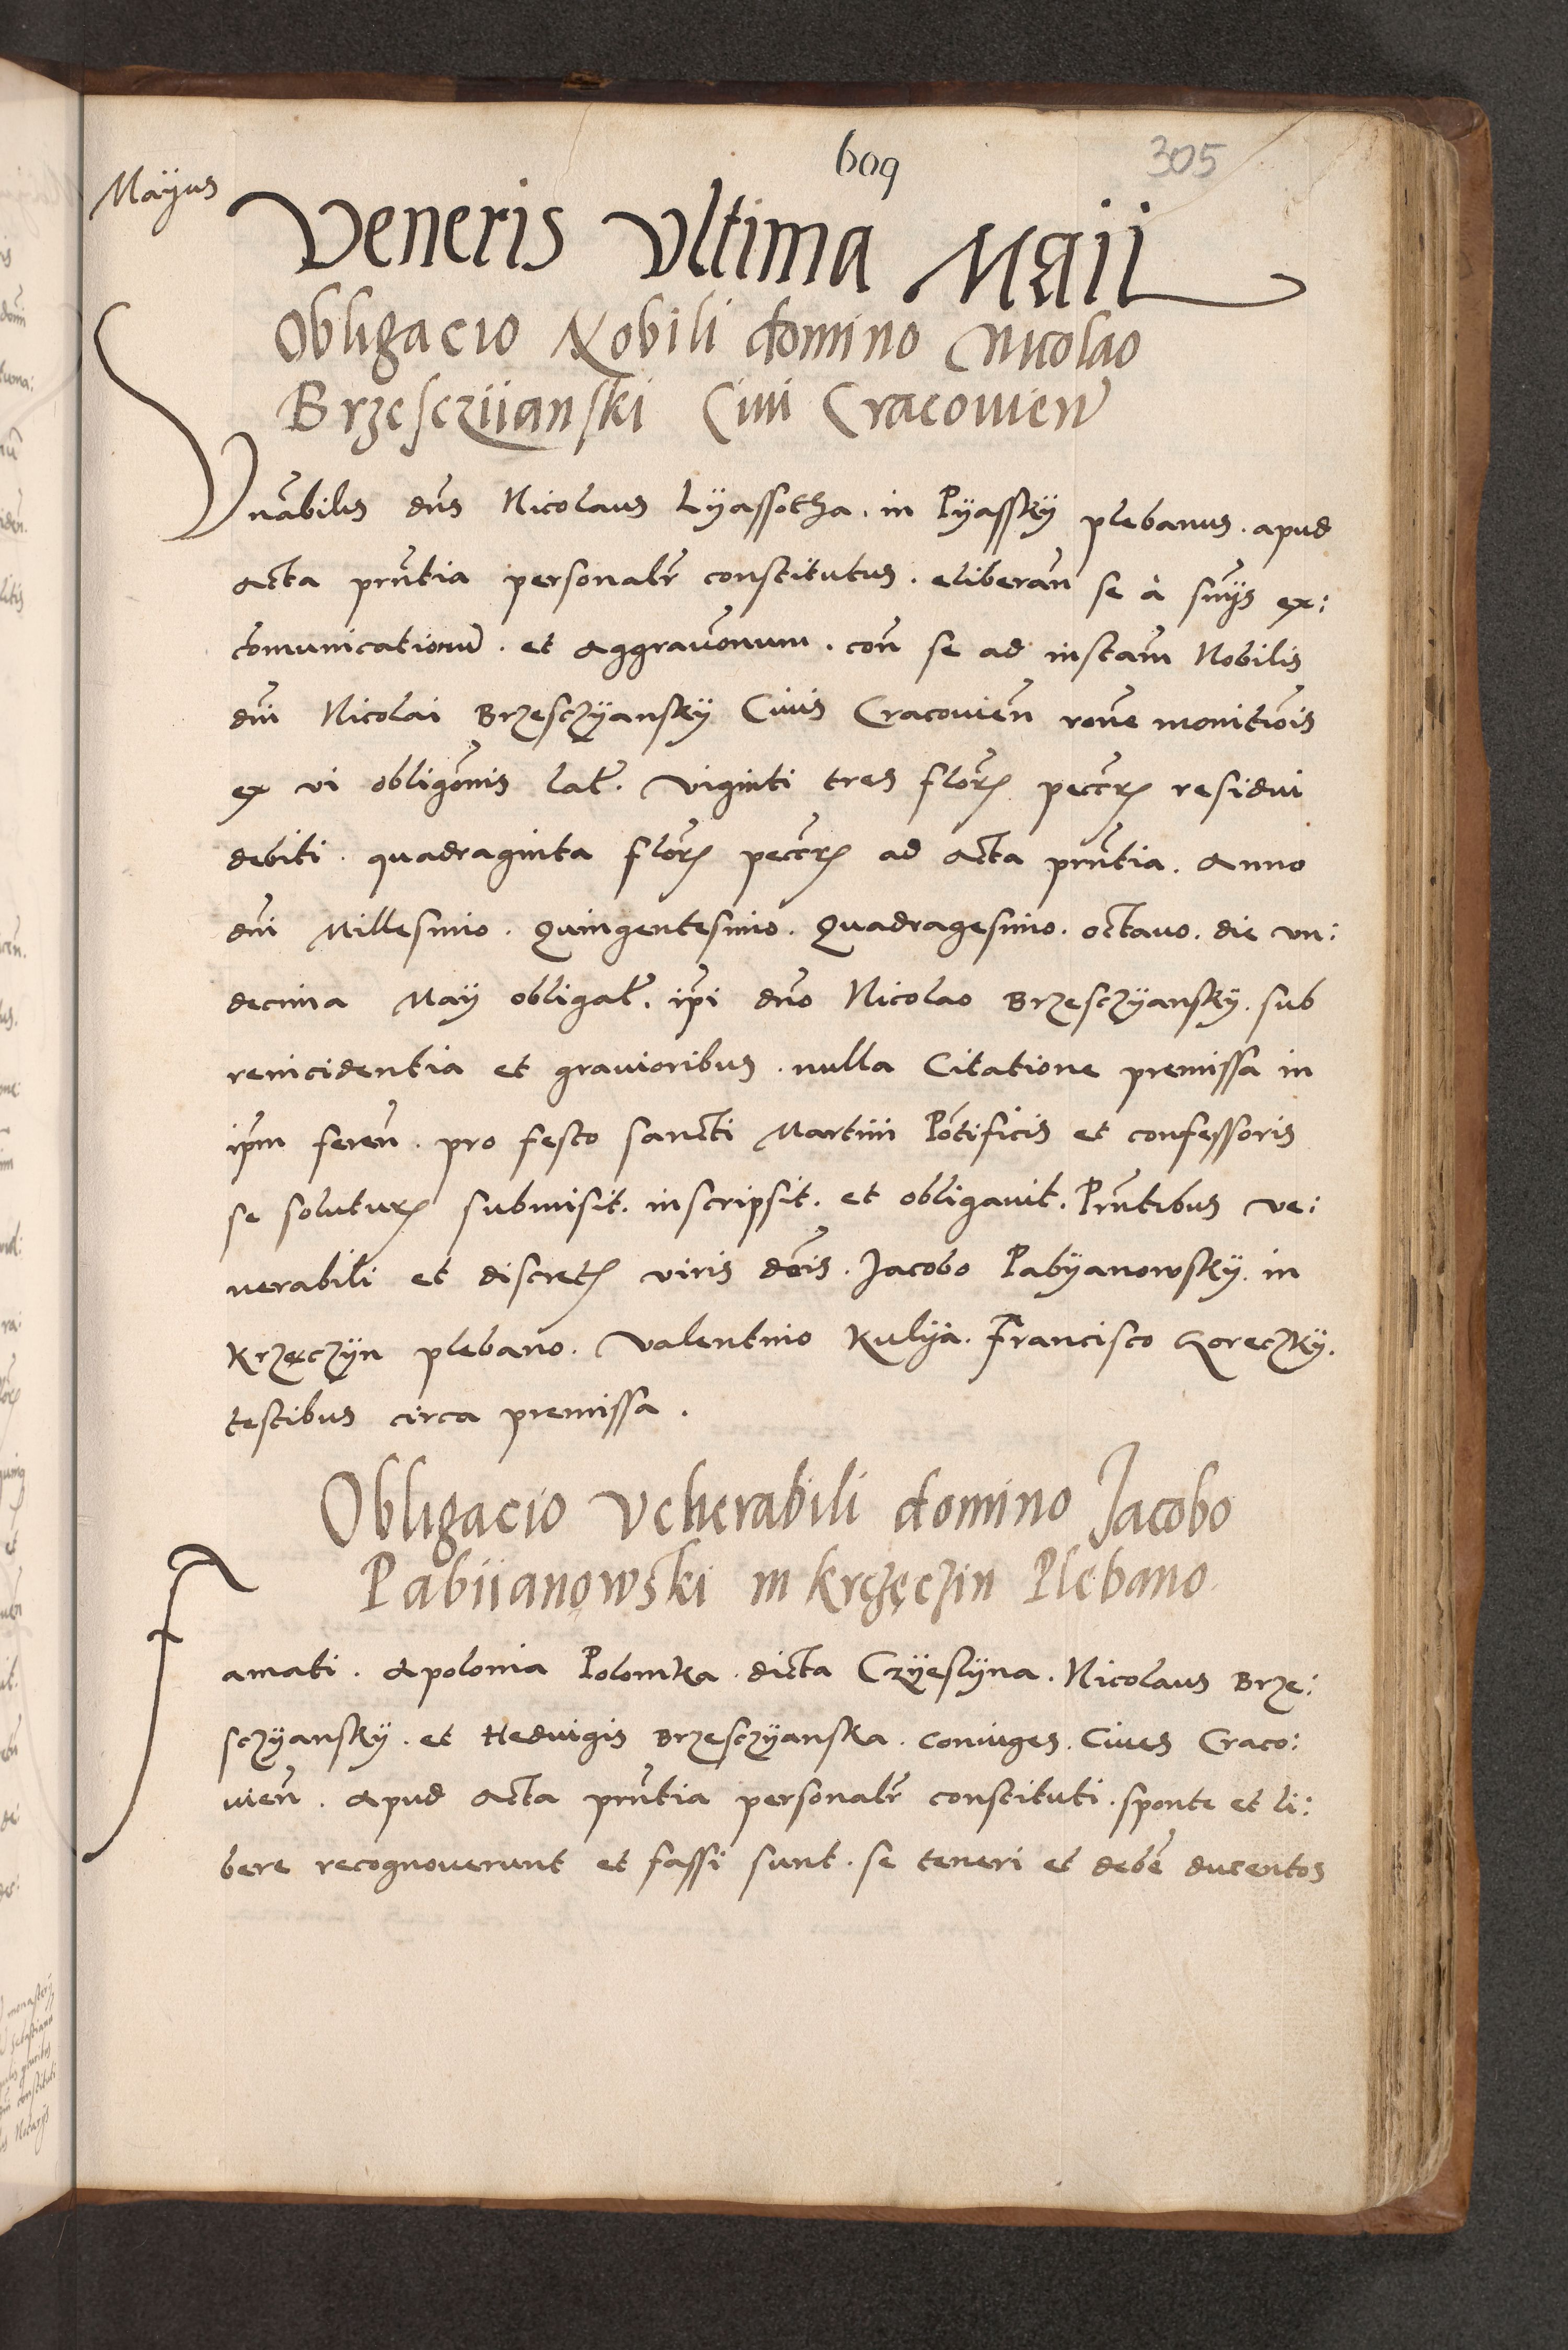 609
305
Mayus
Veneris Ultima Maii
Obligacio Nobili domino Nicolao
Brzesczÿanski Civi Cracovien̄
Vn̄abilis dn̄s Nicolaus Lÿassotha. in Pÿasskÿ plebanus. apud
acta pn̄tia personalr̄ constitutus. eliberan̄ se à sn̄ÿs ex:
cōmunicationum̄. et aggravōnum. con̄ se ad instam̄ Nobilis
dn̄i Nicolai Brzesczÿanskÿ Civis Cracovien̄ rōne monitiōis
ex vi obligōnis lat̄. viginti tres flor̄. pecc̄r̄ residui
debiti. quadraginta flor̄ pecc̄r̄ ad acta pn̄tia. Anno
dn̄i Millesimo. Quingentesimo. Quadragesimo. octavo. die vn:
decima Maÿ obligat̄. ip̄i dn̄o Nicolao Brzesczÿanskÿ. sub
reincidentia et gravioribus. nulla Citatione premissa in
ip̄m feren̄. pro festo sancti Martini Pōtificis et confessoris
se solutur̄ submisit. inscripsit. et obligavit. Pn̄tibus ve:
nerabili et discret̄ viris dn̄is. Jacobo Pabÿanowskÿ. in
Krzęczÿn plebano. Valentino Kulÿa. Francisco Goreczkÿ.
testibus circa premissa.
Obligacio Venerabili domino Jacobo
Pabiianowski in krzęczin Plebano
Famati. Apolonia Polomka. dicta Czÿeslÿna. Nicolaus Brze:
sczÿanskÿ. et Hedvigis Brzesczÿanska. coniuges. Cives Craco:
vien̄. Apud acta pn̄tia personalr̄ constituti. sponte et li:
bere recognoverunt et fassi sunt. se teneri et deber̄ ducentos